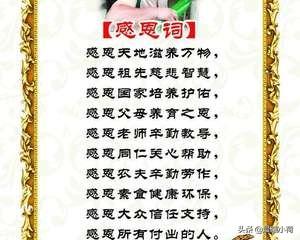 【感恩词】
感恩天地滋养万物，
感恩祖先慈悲智慧，
感恩国家培养护佑，
感恩父母养育之恩，
感恩老师辛勤教导，
感恩同仁关心帮助，
感恩农夫辛勤劳作，
感恩素食健康环保，
感恩大众信任支持，
感恩所有付出的人。